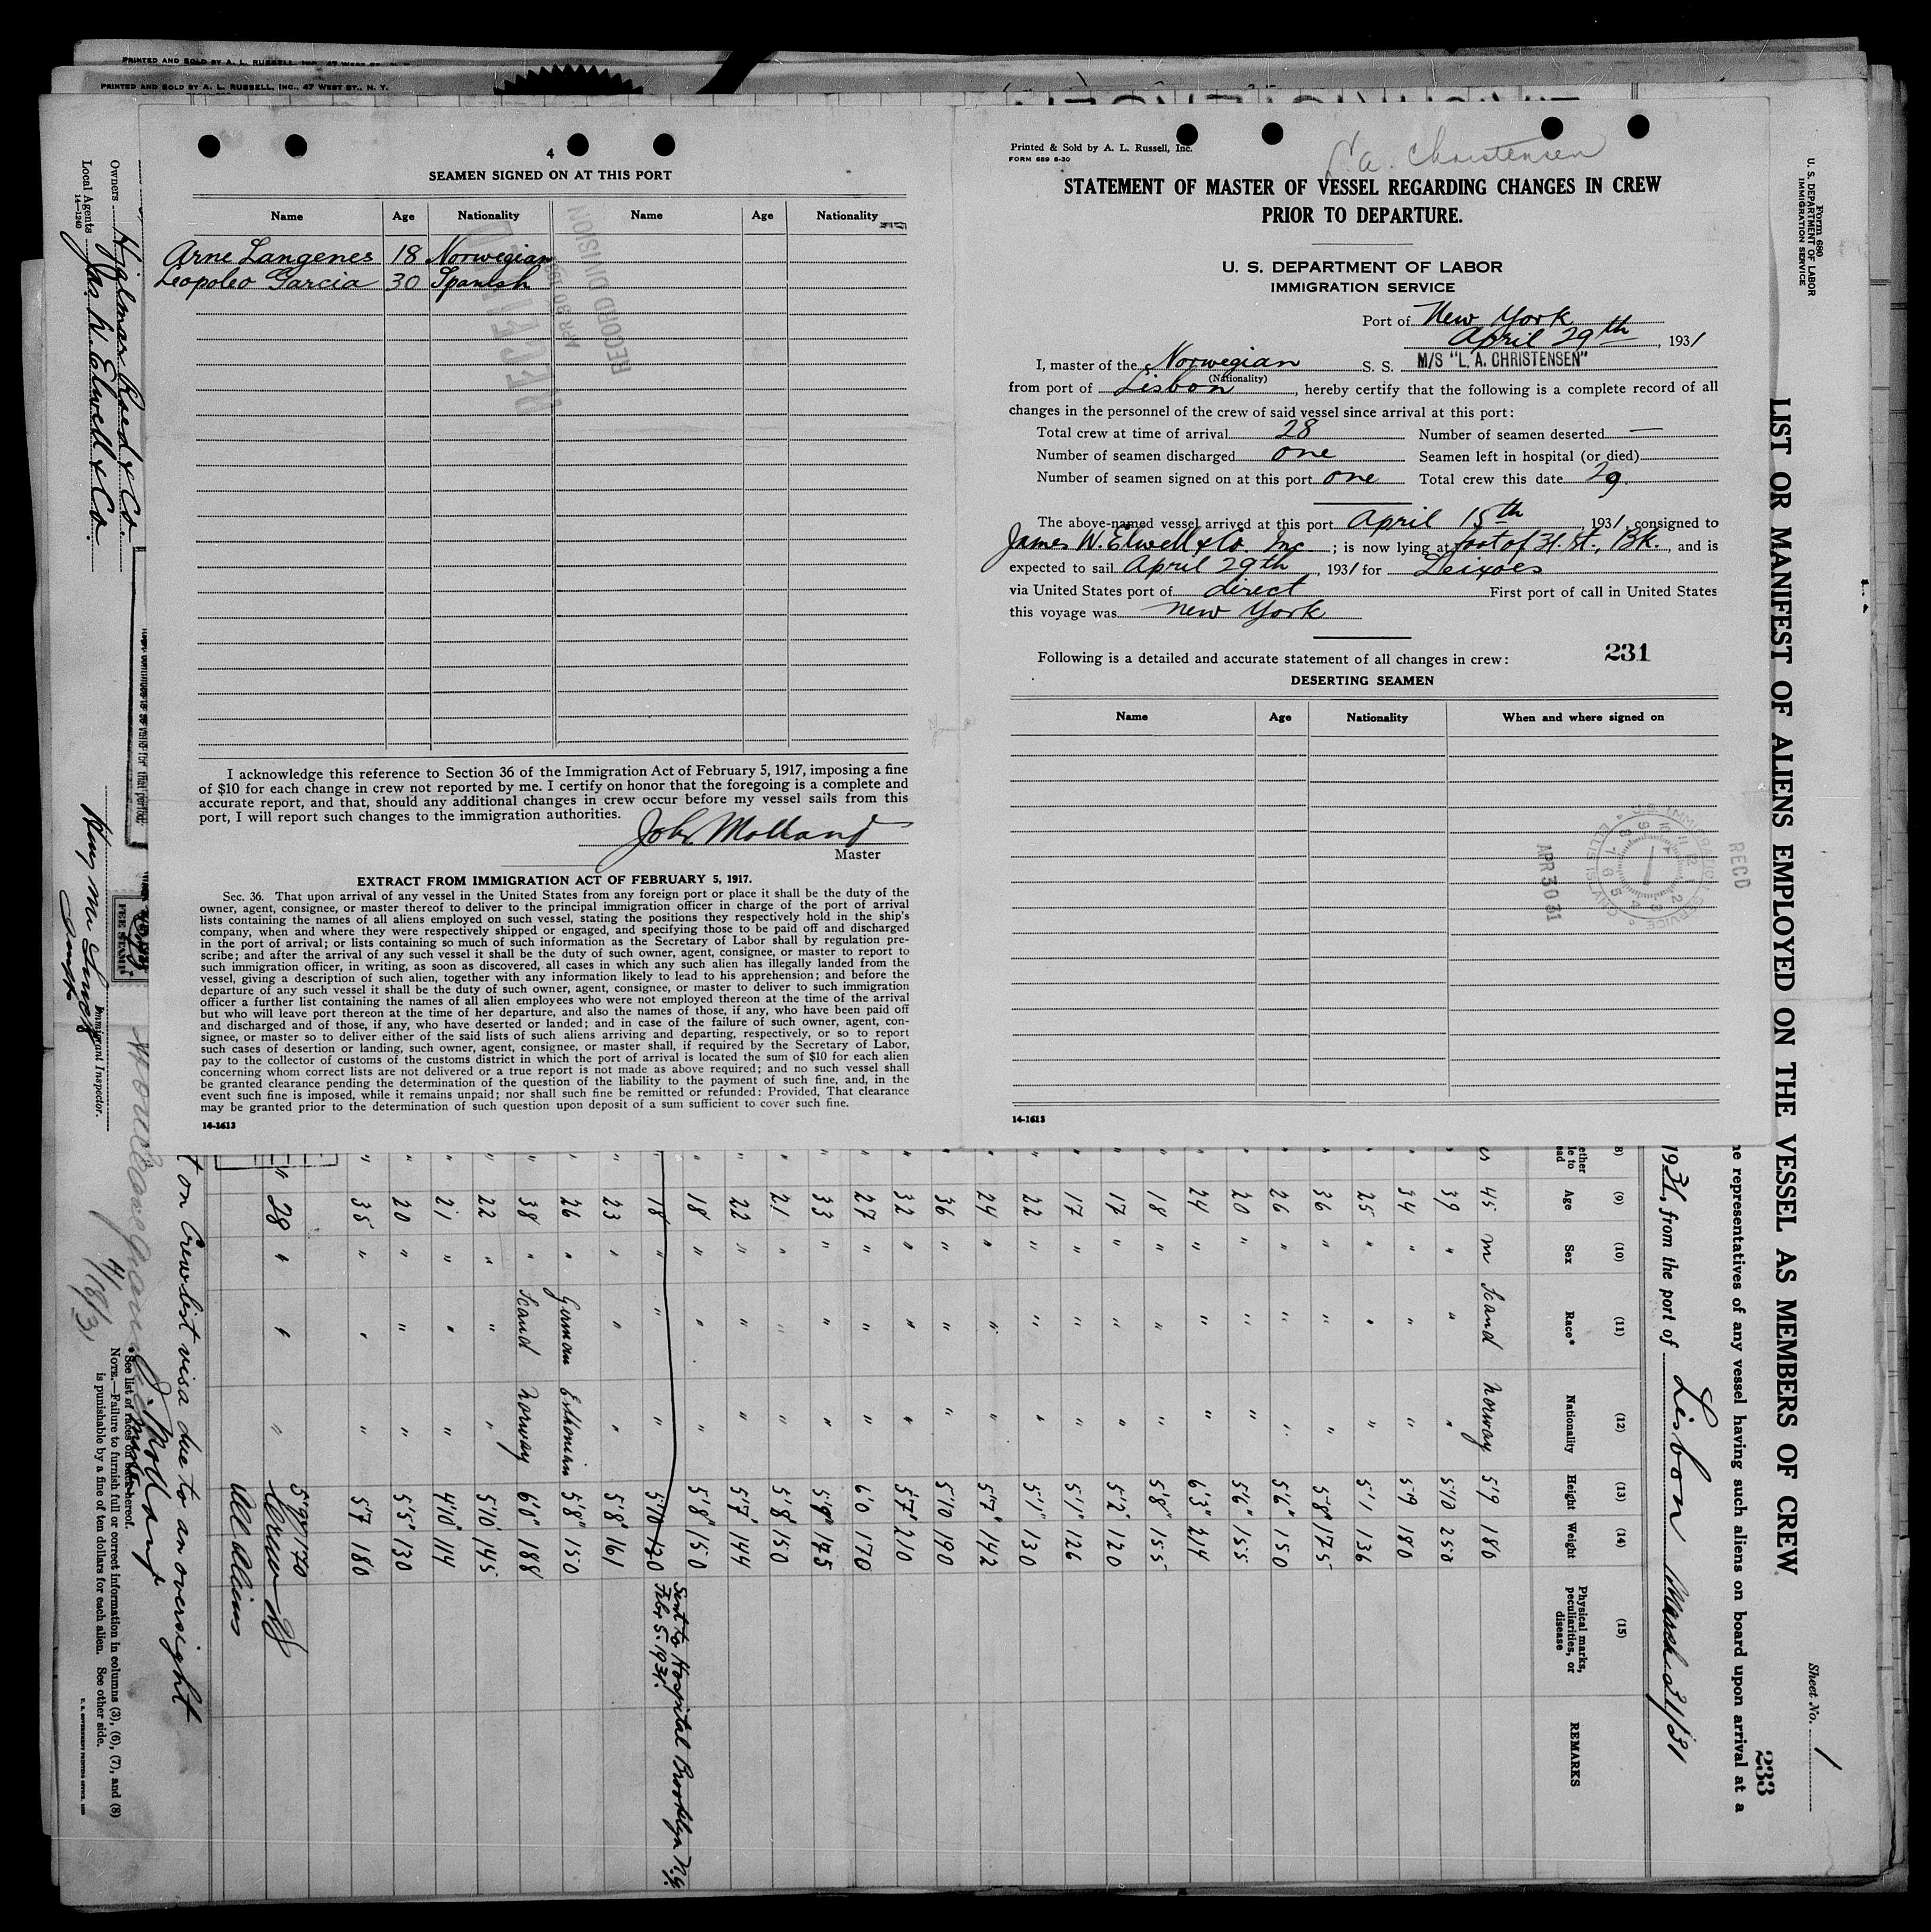 PRINTED AND SOLD BY A. L. RUSSELL, INC., 47 WEST ST., N. Y.
4
SEAMEN SIGNED ON AT THIS PORT
Name Age Nationality Name Age Nationality
Arne Langenes 18 Norwegian
Leopoleo Garcia 30 Spanish
RECEIVED
APR 30 1931
RECORD DIVISION
I acknowledge this reference to Section 36 of the Immigration Act of February 5, 1917, imposing a fine
of $10 for each change in crew not reported by me. I certify on honor that the foregoing is a complete and
accurate report, and that, should any additional changes in crew occur before my vessel sails from this
port, I will report such changes to the immigration authorities.
Joh. Molland
Master
EXTRACT FROM IMMIGRATION ACT OF FEBRUARY 5, 1917.
Sec. 36. That upon arrival of any vessel in the United States from any foreign port or place it shall be the duty of the
owner, agent, consignee, or master thereof to deliver to the principal immigration officer in charge of the port of arrival
lists containing the names of all aliens employed on such vessel, stating the positions they respectively hold in the ship's
company, when and where they were respectively shipped or engaged, and specifying those to be paid off and discharged
in the port of arrival; or lists containing so much of such information as the Secretary of Labor shall by regulation pre-
scribe; and after the arrival of any such vessel it shall be the duty of such owner, agent, consignee, or master to report to
such immigration officer, in writing, as soon as discovered, all cases in which any such alien has illegally landed from the
vessel, giving a description of such alien, together with any information likely to lead to his apprehension; and before the
departure of any such vessel it shall be the duty of such owner, agent, consignee, or master to deliver to such immigration
officer a further list containing the names of all alien employees who were not employed thereon at the time of the arrival
but who will leave port thereon at the time of her departure, and also the names of those, if any, who have been paid off
and discharged and of those, if any, who have deserted or landed; and in case of the failure of such owner, agent, con-
signee, or master so to deliver either of the said lists of such aliens arriving and departing, respectively, or so to report
such cases of desertion or landing, such owner, agent, consignee, or master shall, if required by the Secretary of Labor,
pay to the collector of customs of the customs district in which the port of arrival is located the sum of $10 for each alien
concerning whom correct lists are not delivered or a true report is not made as above required; and no such vessel shall
be granted clearance pending the determination of the question of the liability to the payment of such fine, and, in the
event such fine is imposed, while it remains unpaid; nor shall such fine be remitted or refunded: Provided, That clearance
may be granted prior to the determination of such question upon deposit of a sum sufficient to cover such fine.
14-1613
Printed & Sold by A. L. Russell, Inc.
FORM 689 6-30
L. A. Christensen
STATEMENT OF MASTER OF VESSEL REGARDING CHANGES IN CREW
PRIOR TO DEPARTURE.
U. S. DEPARTMENT OF LABOR
IMMIGRATION SERVICE
Port of New York
April 29th, 1931
I, master of the Norwegian S. S. M/S "L. A. CHRISTENSEN"
(Nationality)
from port of Lisbon, hereby certify that the following is a complete record of all
changes in the personnel of the crew of said vessel since arrival at this port:
Total crew at time of arrival 28 Number of seamen deserted —
Number of seamen discharged one Seamen left in hospital (or died)
Number of seamen signed on at this port one Total crew this date 29.
The above-named vessel arrived at this port April 15th, 1931, consigned to
James W. Elwell & Co. Inc.; is now lying at foot of 31. St., Bk., and is
expected to sail April 29th, 1931 for Leixoes
via United States port of direct First port of call in United States
this voyage was New York
Following is a detailed and accurate statement of all changes in crew: 231
DESERTING SEAMEN
Name Age Nationality When and where signed on
RECD
APR 30 31
14-1613
Form 680
U. S. DEPARTMENT OF LABOR
IMMIGRATION SERVICE
Sheet No. 1
233
LIST OR MANIFEST OF ALIENS EMPLOYED ON THE VESSEL AS MEMBERS OF CREW
representatives of any vessel having such aliens on board upon arrival at a
1931, from the port of Lisbon March 31/31
(9) (10) (11) (12) (13) (14) (15)
Age Sex Race* Nationality Height Weight Physical marks, peculiarities, or disease REMARKS
45 m Scand Norway 5'9 180
39 " " " 5'10 250
34 " " " 5'9 180
25 " " " 5'1 136
36 " " " 5'8 175
26 " " " 5'6" 150
20 " " " 5'6" 155
24 " " " 6'3" 214
18 " " " 5'8" 155
17 " " " 5'2" 120
17 " " " 5'1" 126
22 " " " 5'1" 130
24 " " " 5'7" 142
36 " " " 5'10 190
32 " " " 5'7" 210
27 " " " 6'0 170
33 " " " 5'9" 175
21 " " " 5'8" 150
22 " " " 5'7" 144
18 " " " 5'8" 150
18 " " " 5'10 130 Sent to Hospital Brooklyn N.Y. Febr 5. 1931.
23 " " " 5'8" 161
26 " German Esthonian 5'8" 150
38 " Scand Norway 6'0" 188
22 " " " 5'10" 145
21 " " " 4'10" 114
20 " " " 5'5" 130
35 " " " 5'7 180
28 " " " 5'9 170
All Aliens
t on Crewlist visa due to an oversight
J. Molland
master
*See list of races on back hereof.
NOTE.—Failure to furnish full or correct information in columns (3), (6), (7), and (8)
is punishable by a fine of ten dollars for each alien. See other side.
4/18/31
Immigrant Inspector.
FEE STAMP
Owners Hjalmar Røed & Co.
Local Agents Jas. W. Elwell & Co.
14-1240